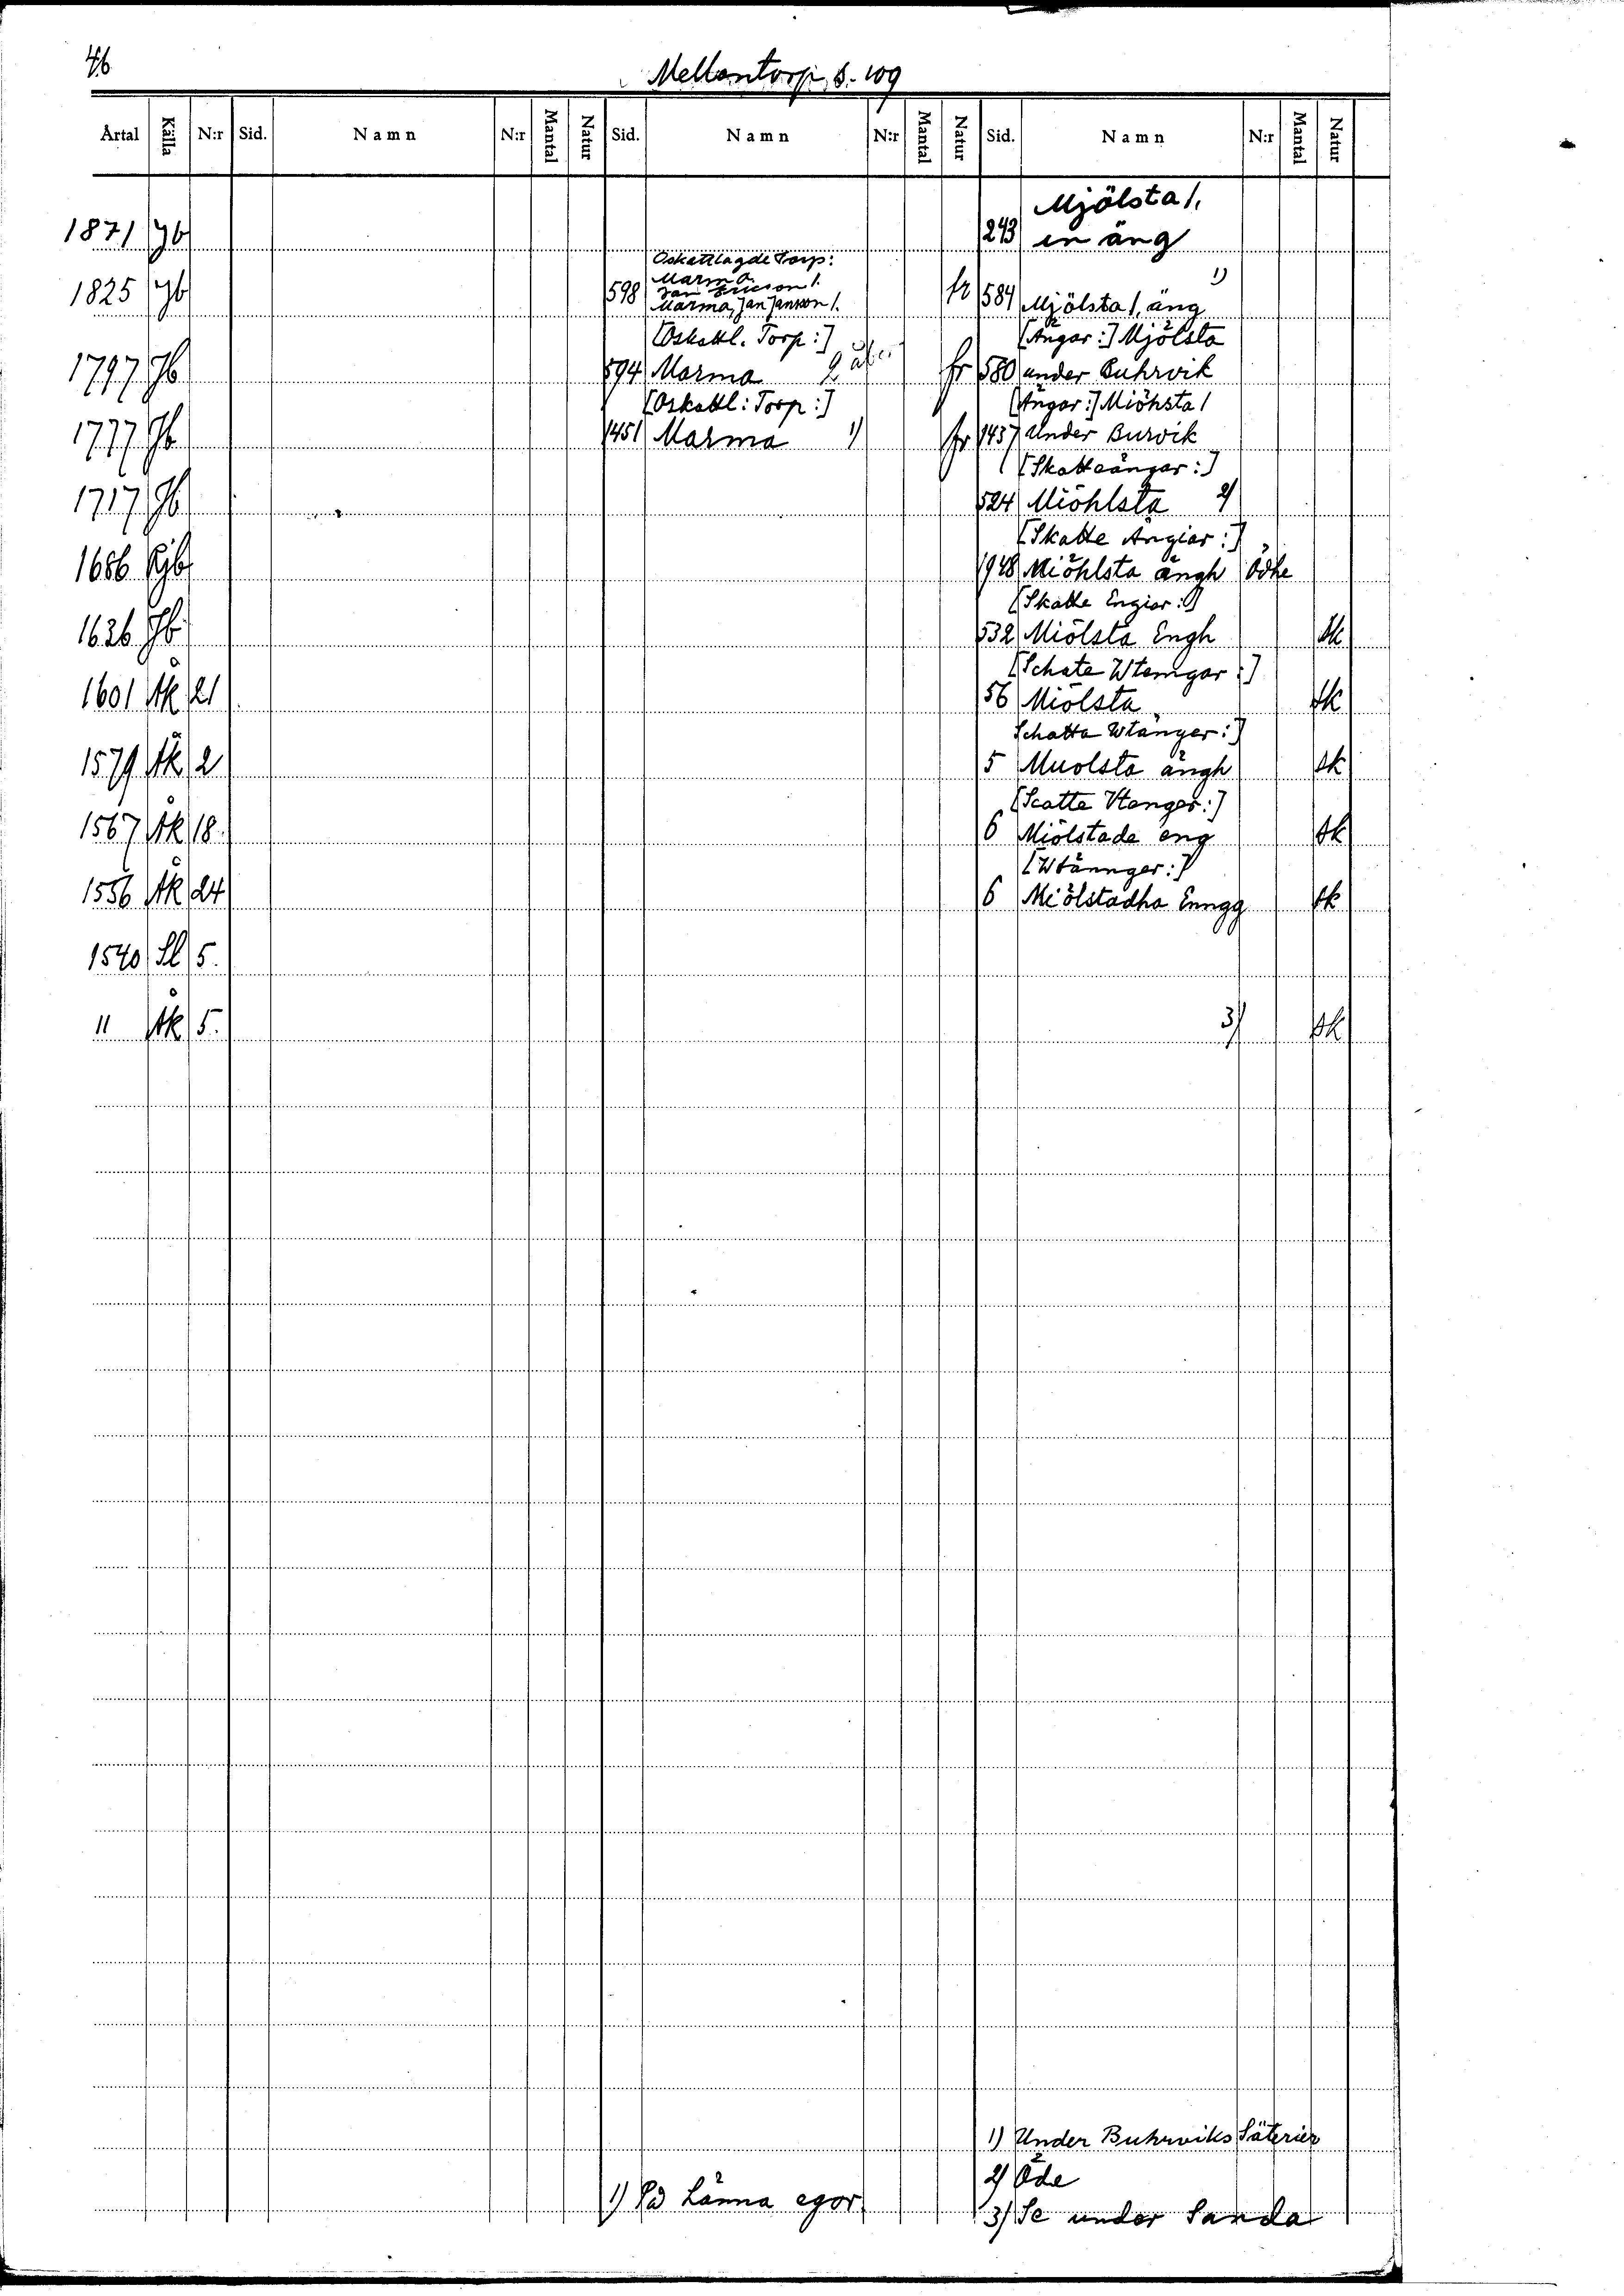 46
Mellantorp, s. 109
Årtal Källa N:r Sid. Namn N:r Mantal Natur Sid. Namn N:r Mantal Natur Sid. Namn N:r Mantal Natur
Mjölsta /,
1871 Jb 243 en äng
Oskattlagde Torp:
Marma
Jan Ericson /.
1825 Jb 598 Marma, Jan Jansson /. fr 584 Mjölsta /, äng 1)
[Oskattl. Torp:] [Ängar:] Mjölsta
1797 Jb 594 Marma 2 fr 580 under Buhrvik
[Oskattl: Torp:] [Ängar:] Miöhsta /
1777 Jb 1451 Marma 1) fr 1437 Under Burvik
[Skatteängar:]
1717 Jb 524 Miöhlsta 2)
[Skatte Ängiar:]
1686 Rjb 1948 Miöhlsta ängh Ödhe
[Skatte Engior:]
1626 Jb 532 Miölsta Engh sk
[Schate Wtemgar:]
1601 Åk 21 56 Miölsta sk
Schatta Wtänger:]
1579 Åk 2 5 Muolsta ängh sk
[Scatte Vtenger:]
1567 Åk 18 6 Miölstade eng sk
[Wtännger:]
1556 Åk 24 6 Miölstadha Enngg sk
1540 Sl 5.
" Åk 5. 3) sk
1) Under Buhrviks Säterier
2) Öde
1) På Länna egor
3) Se under Sanda